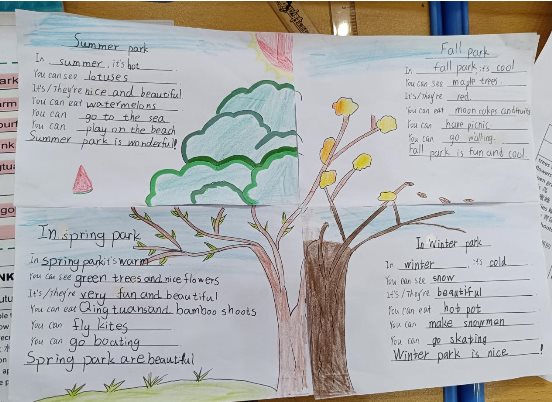 Summer park
In summer, it's hot
You can see lotuses
It's/They're nice and beautiful
You can eat watermelons
You can go to the sea
You can play on the beach
Summer park is wonderful!
Fall park
In fall park, it's cool
You can see maple trees
It's/They're red
You can eat moon cakes and fruits
You can have picnic
You can go walking
Fall park is fun and cool
In spring park
In spring park it's warm
You can see green trees and nice flowers
It's/They're very fun and beautiful
You can eat Qing tuan and bamboo shoots
You can fly kites
You can go boating
Spring park are beautful
In Winter park
In winter, it's cold
You can see snow
It's/They're beautiful
You can eat hot pot
You can make snowman
You can go skating
Winter park is nice!